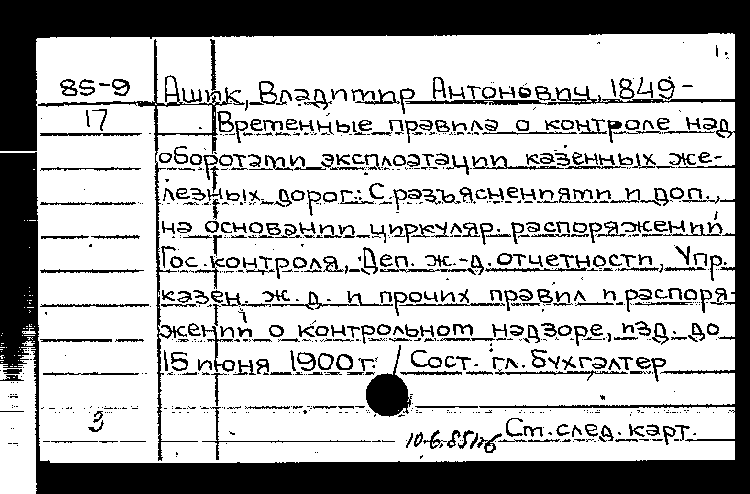 1.
85-9 Ашик, Владимир Антонович, 1849-
17 Временные правила о контроле над
оборотами эксплоатации казенных же-
лезных дорог: С разъяснениями и доп.,
на основании циркуляр. распоряжений
Гос. контроля, Деп. ж.-д. отчетности, Упр.
казен. ж. д. и прочих правил и распоря-
жений о контрольном надзоре, изд. до
15 июня 1900 г. / Сост. гл. бухгалтер
3 См. след. карт.
10.6.85